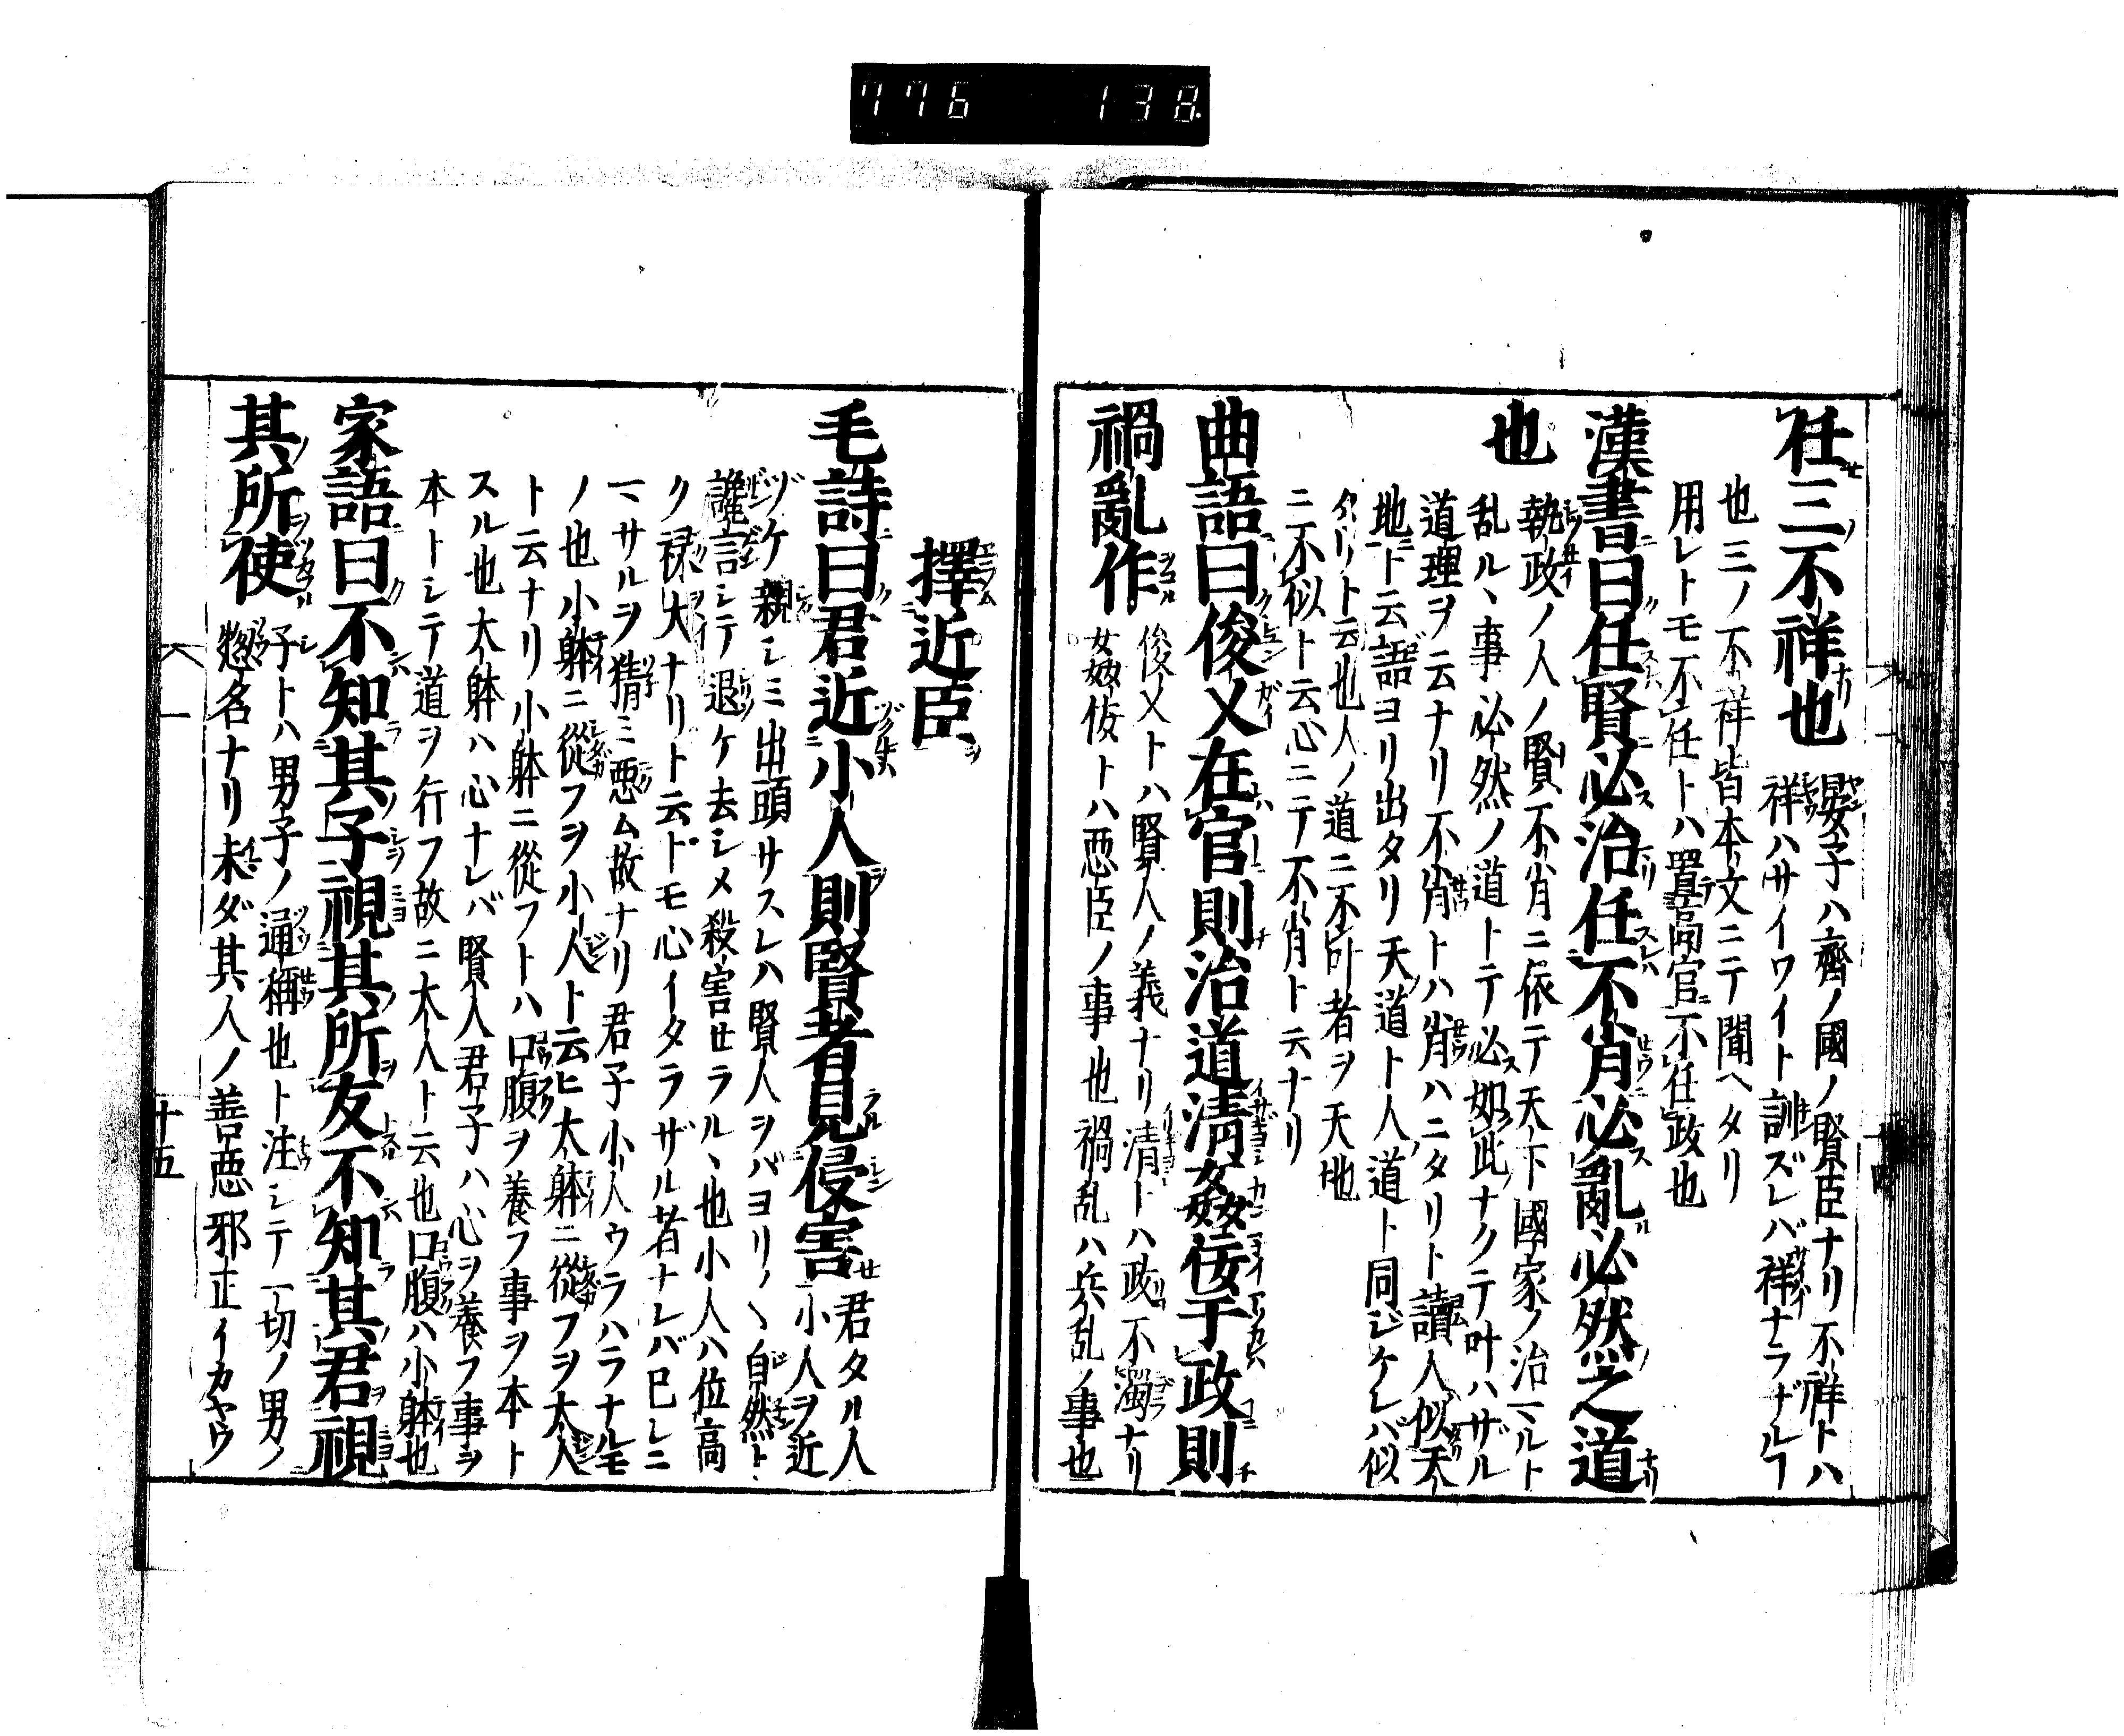 776 138
任三不祥也
晏子ハ齊ノ國ノ賢臣ナリ不祥トハ
祥ハサイワイト訓ズレバ祥ナラザルヿ
也三ノ不祥皆本文ニテ聞ヘタリ
用レトモ不任トハ置高官不任政也
漢書曰任賢必治任不肖必亂必然之道
也
執政ノ人ノ賢不肖ニ依テ天下國家ノ治ルト
乱ル、事必然ノ道トテ必如此ナクテ叶ハザル
道理ヲ云ナリ不肖トハ肖ハニタリト讀人似天
地ト云語ヨリ出タリ天道ト人道ト同ジケレバ似
タリト云也人ノ道ニ不所者ヲ天地
ニ不似ト云心ニテ不肖ト云ナリ
曲語曰俊乂在官則治道清姦佞于政則
禍亂作
俊乂トハ賢人ノ義ナリ清トハ政不濁ナリ
姦佞トハ悪臣ノ事也禍乱ハ兵乱ノ事也
擇近臣
毛詩曰君近小人則賢者見侵害
君タル人
小人ヲ近
ヅケ親シミ出頭サスレハ賢人ヲバヨリ〳〵自然ト
讒言シテ退ケ去シメ殺害セラル、也小人ハ位高
ク祿大ナリト云ドモ心イタラザル者ナレバ己レニ
マサルヲ猜ミ悪ム故ナリ君子小人ウラハラナルモ
ノ也小躰ニ從フヲ小人ト云ヒ大躰ニ從フヲ大人
ト云ナリ小躰ニ從フトハ口腹ヲ養フ事ヲ本ト
スル也大躰ハ心ナレバ賢人君子ハ心ヲ養フ事ヲ
本トシテ道ヲ行フ故ニ大人ト云也口腹ハ小躰也
家語曰不知其子視其所友不知其君視
其所使
子トハ男子ノ通稱也ト注シテ一切ノ男ノ
惣名ナリ未ダ其人ノ善悪邪正イカヤウ
十五